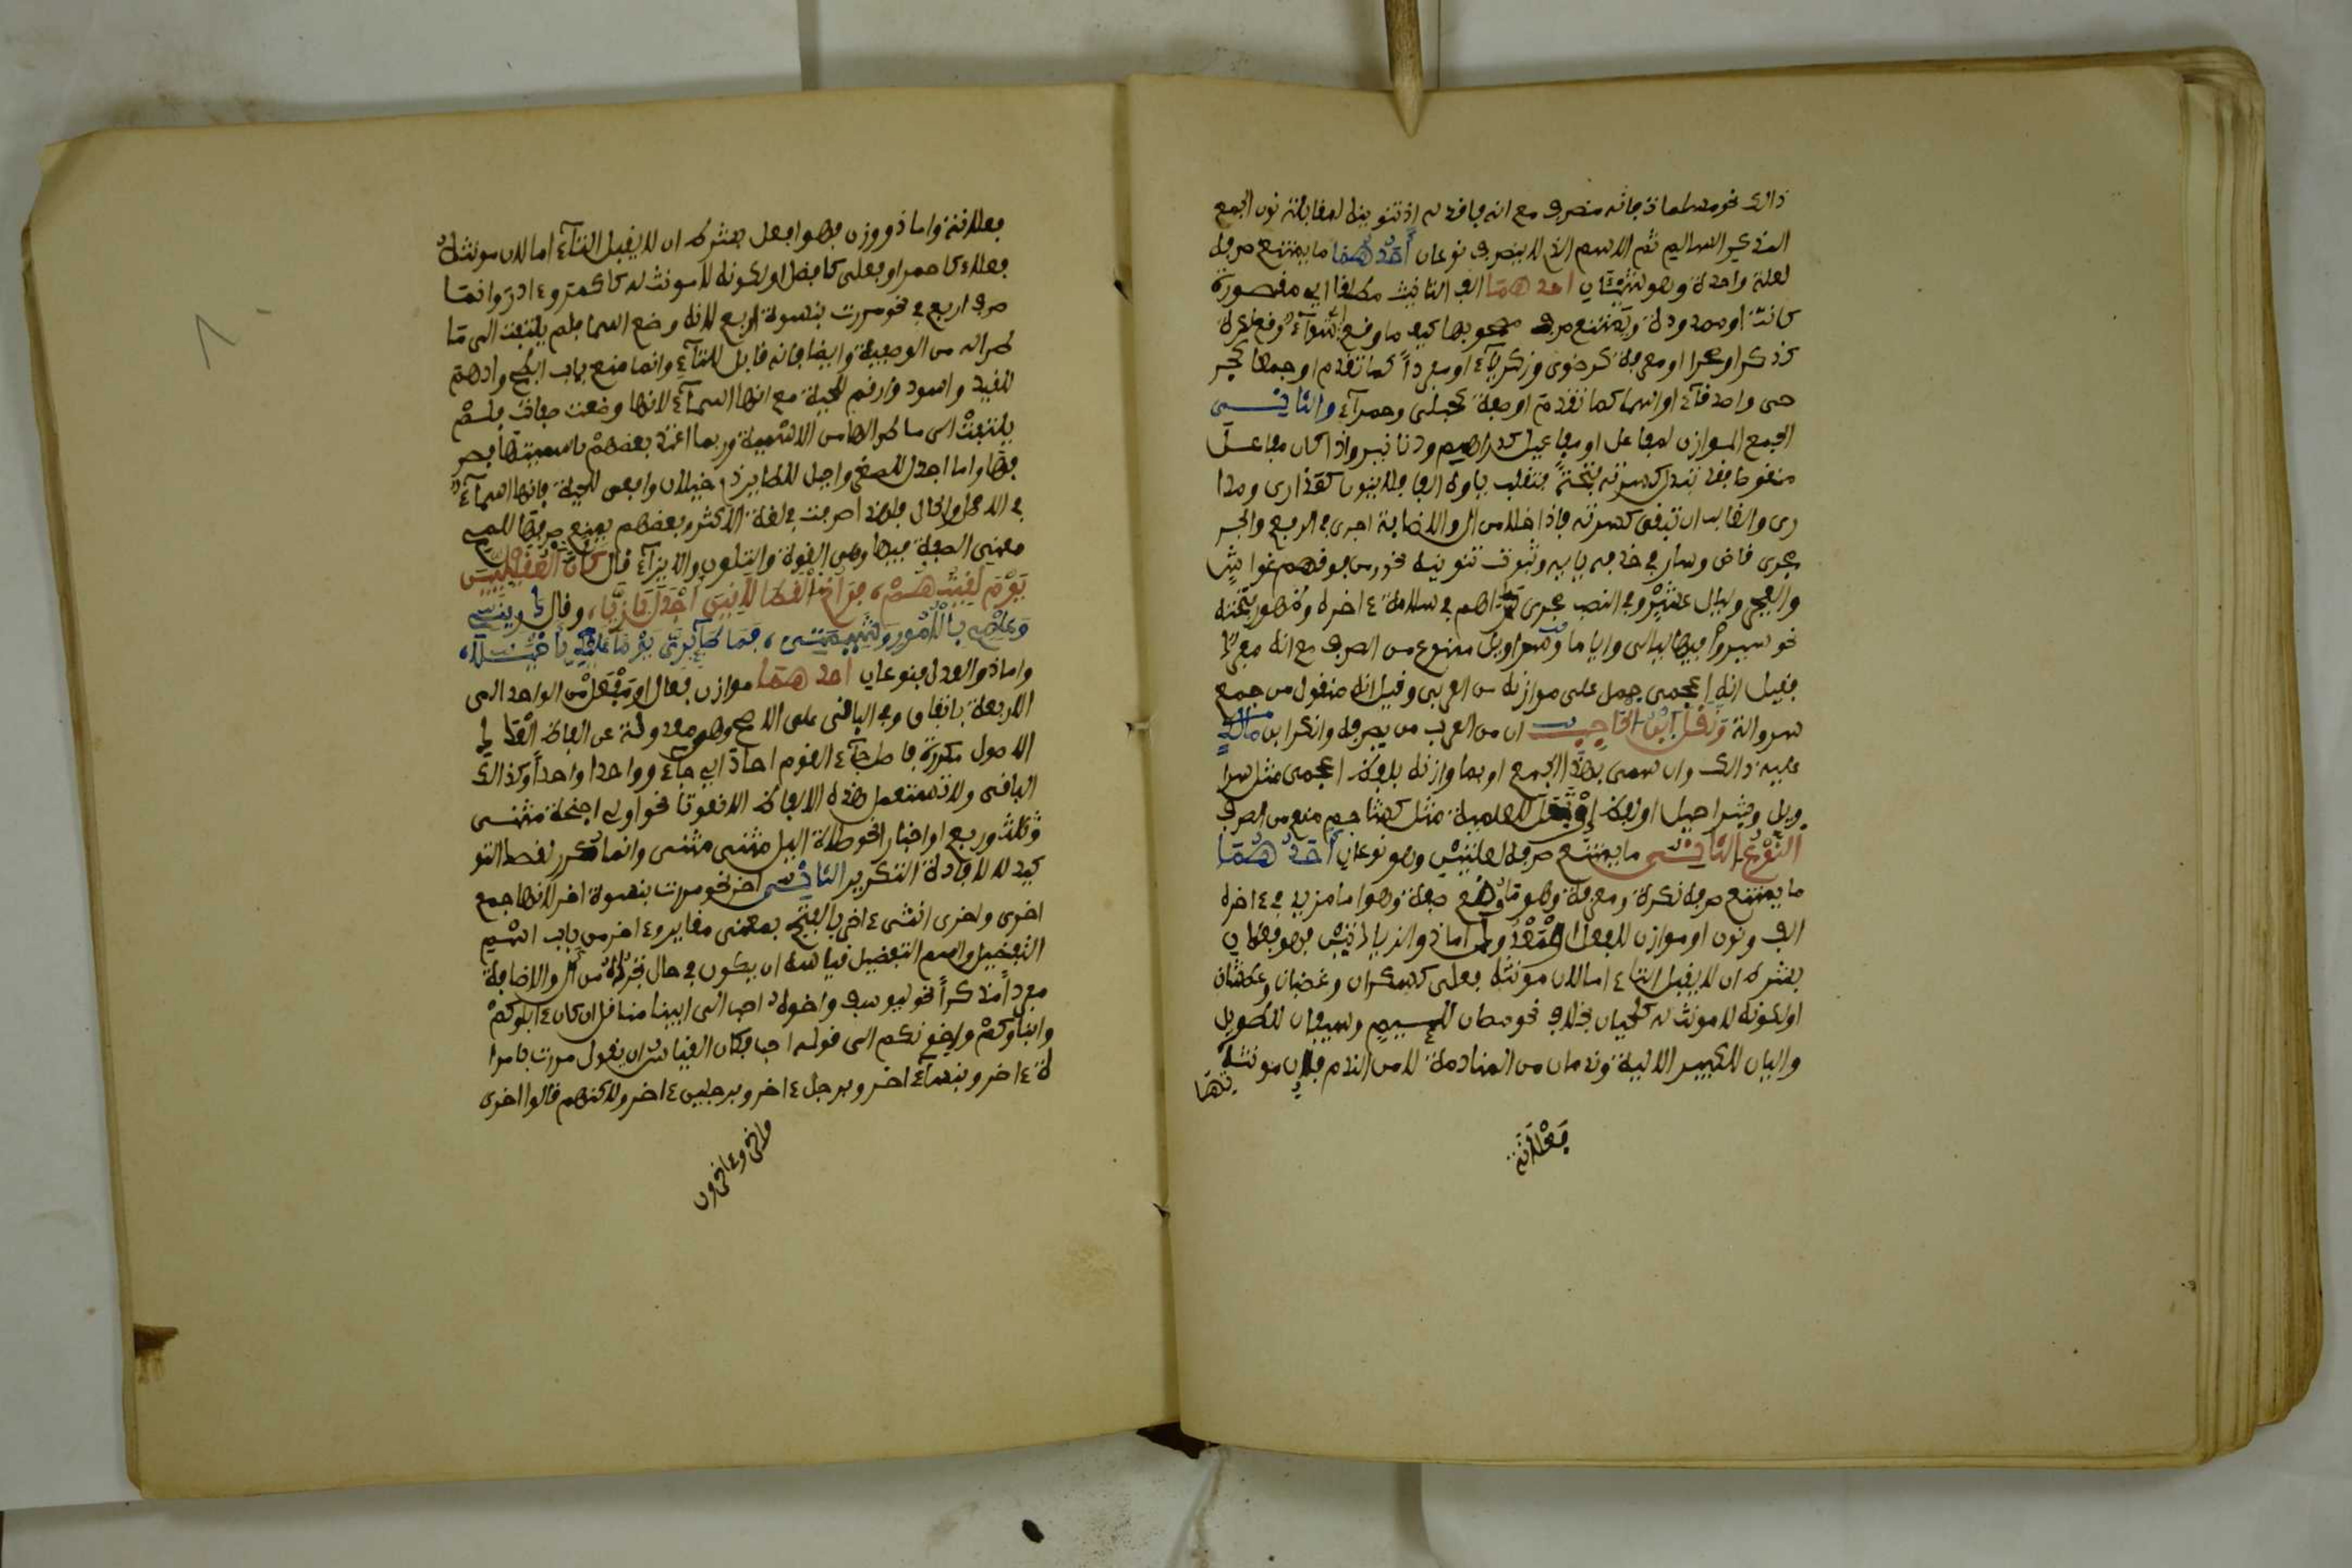 ذالك نحو مسلمات فانه منصرف مع انه فاقد له اذ تنوينه لمقابلة نون الجمع
المذكير السالم ثم الاسم الذي لا ينصرف نوعان أحدهما ما يمتنع صرفه
لعلة واحدة وهو شيئان احدهما الف التانيث مطلقا اي مقصورة
كانت او ممدودة ويمتنع صرف مصحوبها كيف ما وقع اي سوآء وقع نكرة
كذكرا وصحرا او معرفة كرضوى وزكريآء او مفردا كما تقدم او جمعا كجر
حى واصدقآء او اسما كما تقدم او صفة كحبلى وحمرآء والثاني
الجمع الموازن لمفاعل او مفاعيل كدراهم ودنانير واذا كان مفاعل
منقوصا فقد تبدل كسرته فتحة فتنقلب ياوه الفا فلا ينون كعذارى ومدا
رى والغالب ان تبقى كسرته فاذا خلا من ال والاضافة اجرى في الرفع والجر
مجرى قاض وسار في حذف يايه وثبوت تنوينه نحو ومن فوقهم غواش
والفجر وليال عشر وفي النصب مجرى دراهم في سلامة ءاخره وظهور فتحته
نحو سيروا فيها ليالى واياما وسراويل ممنوع من الصرف مع انه مفرد
فقيل انه اعجمى حمل على موازنه من العربى وقيل انه منقول من جمع
سروالة ونقل ابن الحاجب ان من العرب من يصرفه وانكر ابن مالك
عليه ذالك وان سمى بهذا الجمع او بما وازنه بلفظ اعجمى مثل سرا
ويل وشراحيل او لفظ ارتجل للعلمية مثل كشاجم منع من الصرف
النوع الثاني ما يمتنع صرفه لعلتين وهو نوعان أحدهما
ما يمتنع صرفه نكرة ومعرفة وهو ما وضع صفة وهو اما مزيد في ءاخره
الف ونون او موازن للفعل او معدول اما ذو الزيادتين فهو فعلان
بشرط ان لا يقبل التاء اما لان مونثه فعلى كسكران وغضبان وعطشان
او لكونه لا مونث له كلحيان بخلاف نحو مصان للئيم وسيفان للطويل
واليان للكبير الالية وندمان من المنادمة لا من الندم فان مونثاتها
فعلانة
فعلانة واما ذو وزن فهو افعل بشرط ان لا يقبل التآء اما لان مونثه
فعلاء كاحمر او فعلى كافضل او لكونه لا مونث له كاكمر وءادر وانما
صرف اربع في نحو مررت بنسوة اربع لانه وضع اسما فلم يلتفت الى ما
طرا له من الوصفية وايضا فانه قابل للتآء وانما منع باب ابطح وادهم
للقيد واسود وارقم للحية مع انها اسمآء لانها وضعت صفات فلم
يلتفت الى ما طرا لها من الاسمية وربما اعتد بعضهم باسميتها فصر
فها واما اجدل للصقر واخيل للطاير ذي خيلان وافعى للحية فانها اسمآء
في الاصل والحال فلهذا صرفت في لغة الاكثر وبعضهم يمنع صرفها للمح
معنى الصفة فيها وهي القوة والتلون والايذآء قال كأن العقيليين
يوم لقيتهم ، فراخ القطا لاقين اجدل بازيا ، وقال ذريني
وعلمي بالامور وشيمتي ، فما طآيرى يوما عليك باخيلا ،
واما ذو العدل فنوعان احدهما موازن فعال او مفعل من الواحد الى
الاربعة باتفاق وفي الباقى على الاصح وهو معدولة عن الفاظ العدد
الاصول مكررة فاصل جآء القوم احاد اي جآءو واحدا واحدا وكذالك
الباقى ولا تستعمل هذه الالفاظ الا نعوتا نحو اولي اجنحة مثنى
وثلث وربع او اخبارا نحو صلاة اليل مثنى مثنى وانما تكرر لقصد التو
كيد لا لافادة التكرير الثاني اخر نحو مررت بنسوة اخر لانها جمع
اخرى واخرى انثى ءاخر بالفتح بمعنى مغاير وءاخر من باب اسم
التفضيل واسم التفضيل قياسه ان يكون في حال تجرده من ال والاضافة
مفردا مذكرا نحو ليوسف واخوه احب الى ابينا منا قل ان كان ءاباوكم
وابناوكم واخونكم الى قوله احب فكان القياس ان يقول مررت بامرا
ة ءاخر وبنسآء اخر وبرجل ءاخر وبرجلين ءاخر ولاكنهم قالوا اخرى
واخر وءاخرون